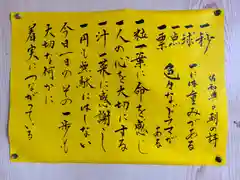 一秒
一球
一点
一票
には重みがある
色々なドラマがある
一粒一葉に命を感じ
一人の心を大切にする
一汁一菜に感謝し
一円も無駄にはしない
今日一日のその一歩も
大切な何かに
着実につながっている